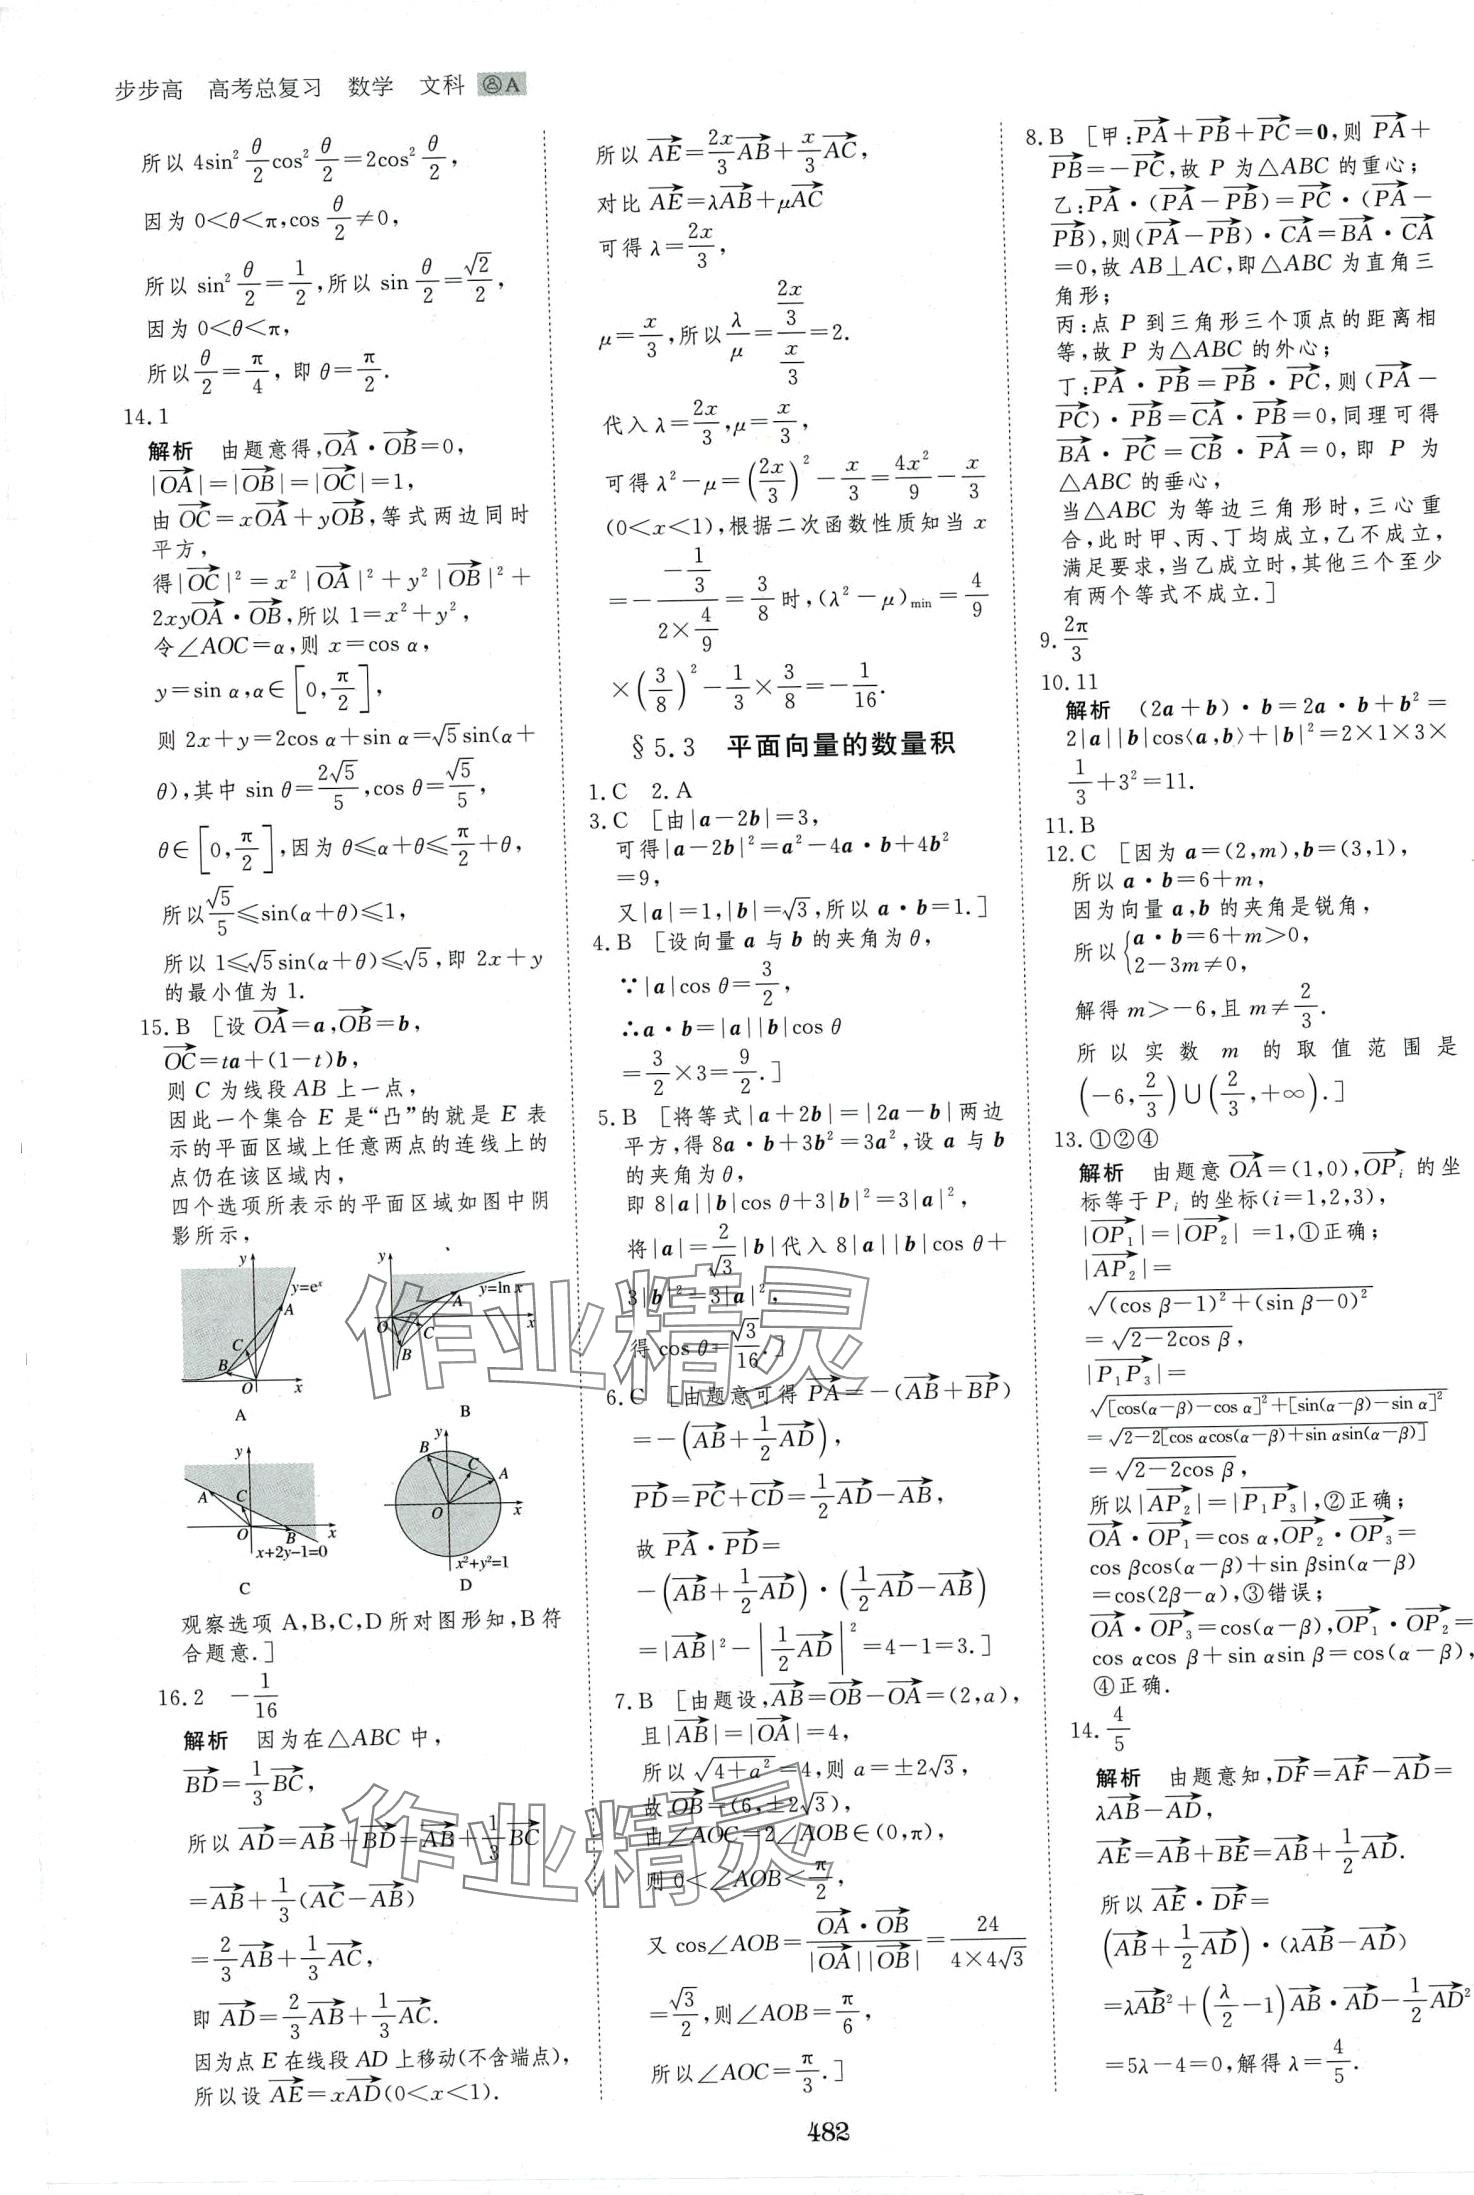 步步高 高考总复习 数学 文科 A
所以 4sin² θ/2 cos² θ/2=2cos² θ/2,
因为 0<θ<π,cos θ/2≠0,
所以 sin² θ/2=1/2,所以 sin θ/2=√2/2,
因为 0<θ<π,
所以 θ/2=π/4, 即 θ=π/2.
14.1
解析 由题意得,OA→·OB→=0,
|OA→|=|OB→|=|OC→|=1,
由 OC→=xOA→+yOB→,等式两边同时
平方,
得|OC→|²=x²|OA→|²+y²|OB→|²+
2xyOA→·OB→,所以 1=x²+y²,
令∠AOC=α,则 x=cos α,
y=sin α,α∈[0,π/2],
则 2x+y=2cos α+sin α=√5sin(α+
θ),其中 sin θ=2√5/5,cos θ=√5/5,
θ∈[0,π/2],因为 θ≤α+θ≤π/2+θ,
所以√5/5≤sin(α+θ)≤1,
所以 1≤√5sin(α+θ)≤√5,即 2x+y
的最小值为 1.
15.B [设 OA→=a,OB→=b,
OC→=ta+(1-t)b,
则 C 为线段 AB 上一点,
因此一个集合 E 是“凸”的就是 E 表
示的平面区域上任意两点的连线上的
点仍在该区域内,
四个选项所表示的平面区域如图中阴
影所示,
y y=eˣ A C B O x
A
y y=ln x A O C B x
B
y A C O B x x+2y-1=0
C
y B C A O x x²+y²=1
D
观察选项 A,B,C,D 所对图形知,B符
合题意.]
16.2 -1/16
解析 因为在△ABC 中,
BD→=1/3BC→,
所以 AD→=AB→+BD→=AB→+1/3BC→
=AB→+1/3(AC→-AB→)
=2/3AB→+1/3AC→,
即 AD→=2/3AB→+1/3AC→.
因为点 E 在线段 AD 上移动(不含端点),
所以设 AE→=xAD→(0<x<1).
所以 AE→=2x/3AB→+x/3AC→,
对比 AE→=λAB→+μAC→
可得 λ=2x/3,
μ=x/3,所以 λ/μ=(2x/3)/(x/3)=2.
代入 λ=2x/3,μ=x/3,
可得 λ²-μ=(2x/3)²-x/3=4x²/9-x/3
(0<x<1),根据二次函数性质知当 x
=-(-1/3)/(2×4/9)=3/8时,(λ²-μ)min=4/9
×(3/8)²-1/3×3/8=-1/16.
§5.3 平面向量的数量积
1.C 2.A
3.C [由|a-2b|=3,
可得|a-2b|²=a²-4a·b+4b²
=9,
又|a|=1,|b|=√3,所以 a·b=1.]
4.B [设向量 a 与 b 的夹角为 θ,
∵|a|cos θ=3/2,
∴a·b=|a||b|cos θ
=3/2×3=9/2.]
5.B [将等式|a+2b|=|2a-b|两边
平方,得 8a·b+3b²=3a²,设 a 与 b
的夹角为 θ,
即 8|a||b|cos θ+3|b|²=3|a|²,
将|a|=2/√3|b|代入 8|a||b|cos θ+
3|b|²=3|a|²,
得 cos θ=√3/16.]
6.C [由题意可得 PA→=-(AB→+BP→)
=-(AB→+1/2AD→),
PD→=PC→+CD→=1/2AD→-AB→,
故 PA→·PD→=
-(AB→+1/2AD→)·(1/2AD→-AB→)
=|AB→|²-|1/2AD→|²=4-1=3.]
7.B [由题设,AB→=OB→-OA→=(2,a),
且|AB→|=|OA→|=4,
所以 √(4+a²)=4,则 a=±2√3,
故OB→=(6,±2√3),
由∠AOC=2∠AOB∈(0,π),
则 0<∠AOB<π/2,
又 cos∠AOB=OA→·OB→/|OA→||OB→|=24/(4×4√3)
=√3/2,则∠AOB=π/6,
所以∠AOC=π/3.]
8.B [甲:PA→+PB→+PC→=0,则 PA→+
PB→=-PC→,故 P 为△ABC 的重心;
乙:PA→·(PA→-PB→)=PC→·(PA→-
PB→),则(PA→-PB→)·CA→=BA→·CA→
=0,故 AB⊥AC,即△ABC 为直角三
角形;
丙:点 P 到三角形三个顶点的距离相
等,故 P 为△ABC 的外心;
丁:PA→·PB→=PB→·PC→,则(PA→-
PC→)·PB→=CA→·PB→=0,同理可得
BA→·PC→=CB→·PA→=0,即 P 为
△ABC 的垂心,
当△ABC 为等边三角形时,三心重
合,此时甲、丙、丁均成立,乙不成立,
满足要求,当乙成立时,其他三个至少
有两个等式不成立.]
9.2π/3
10.11
解析 (2a+b)·b=2a·b+b²=
2|a||b|cos⟨a,b⟩+|b|²=2×1×3×
1/3+3²=11.
11.B
12.C [因为 a=(2,m),b=(3,1),
所以 a·b=6+m,
因为向量 a,b 的夹角是锐角,
所以{a·b=6+m>0,
2-3m≠0,
解得 m>-6,且 m≠2/3.
所以实数 m 的取值范围是
(-6,2/3)∪(2/3,+∞).]
13.①②④
解析 由题意 OA→=(1,0),OPᵢ→ 的坐
标等于 Pᵢ 的坐标(i=1,2,3),
|OP₁→|=|OP₂→|=1,①正确;
|AP₂→|=
√((cos β-1)²+(sin β-0)²)
=√(2-2cos β),
|P₁P₃→|=
√([cos(α-β)-cos α]²+[sin(α-β)-sin α]²)
=√(2-2[cos αcos(α-β)+sin αsin(α-β)])
=√(2-2cos β),
所以|AP₂→|=|P₁P₃→|,②正确;
OA→·OP₁→=cos α,OP₂→·OP₃→=
cos βcos(α-β)+sin βsin(α-β)
=cos(2β-α),③错误;
OA→·OP₃→=cos(α-β),OP₁→·OP₂→=
cos αcos β+sin αsin β=cos(α-β),
④正确.
14.4/5
解析 由题意知,DF→=AF→-AD→=
λAB→-AD→,
AE→=AB→+BE→=AB→+1/2AD→.
所以 AE→·DF→=
(AB→+1/2AD→)·(λAB→-AD→)
=λAB→²+(λ/2-1)AB→·AD→-1/2AD→²
=5λ-4=0,解得 λ=4/5.
作业精灵
作业精灵
482